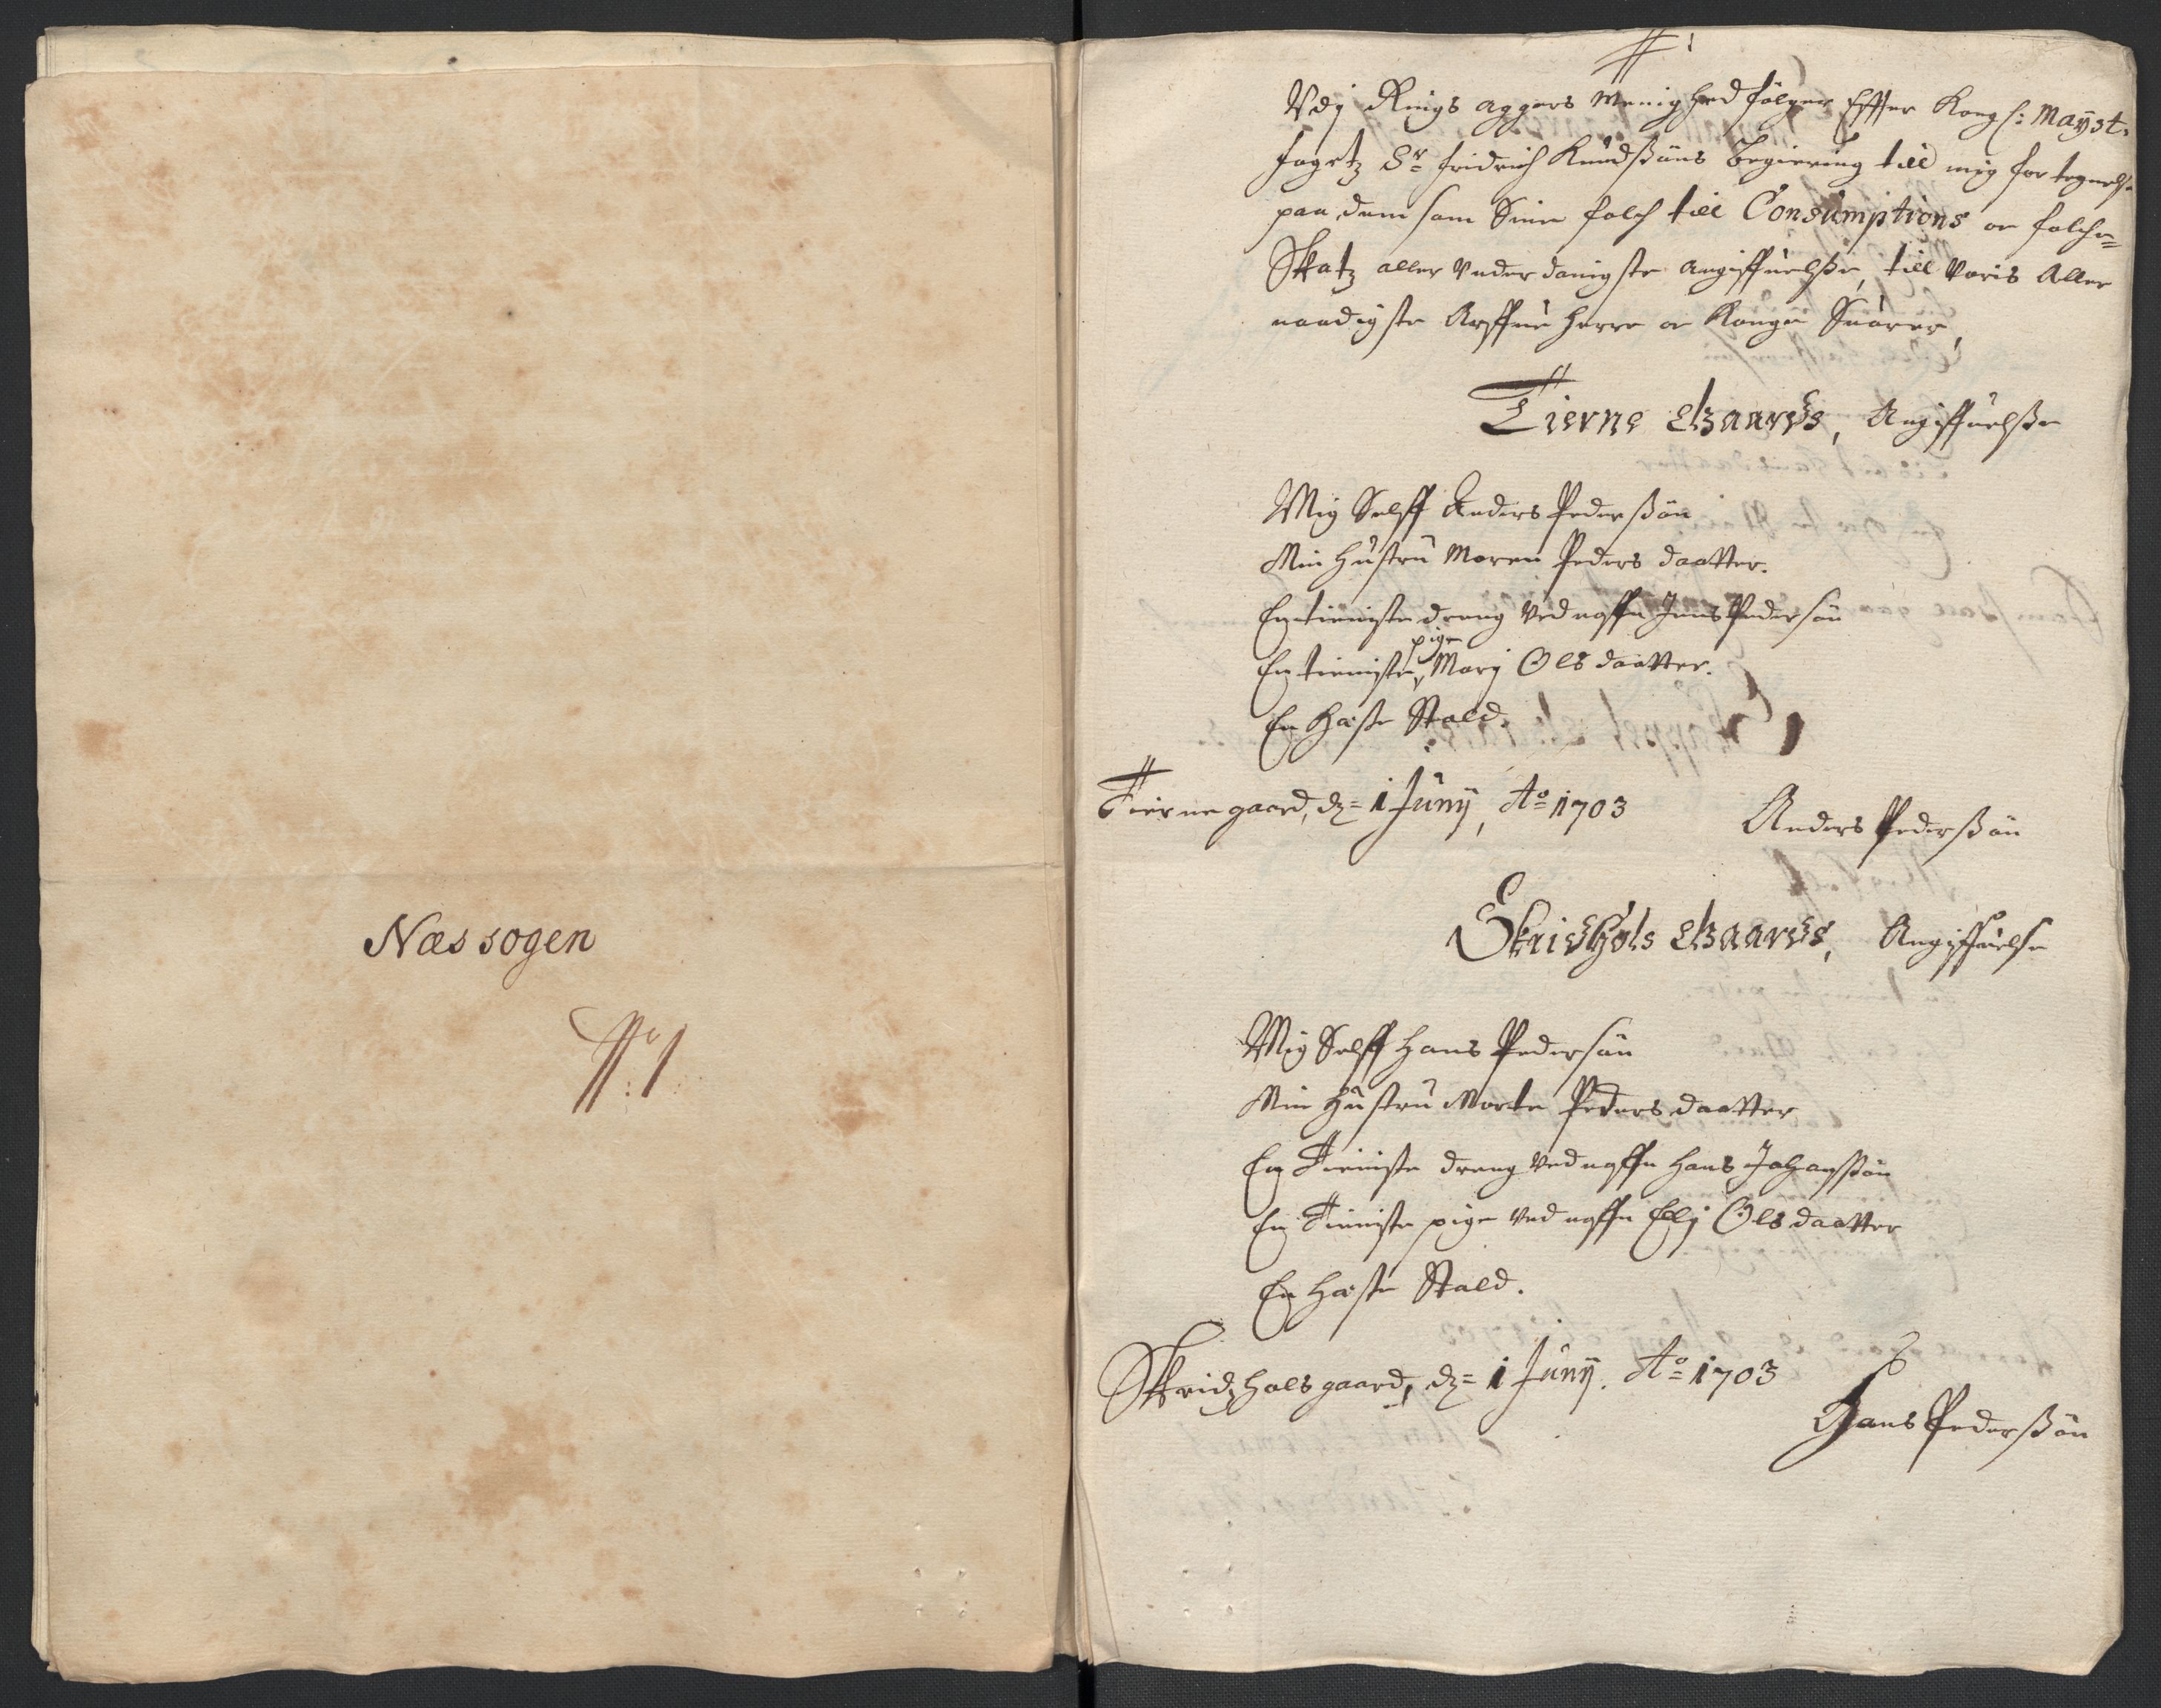 Næs sogen
No: 1
No 1
Vdj Ringsaggers Menighed følger Effter Kongl: Mayst.
fogetz Sr Fridrich Knudßøns Begiering till mig fortegnelse
paa dem som Sine folch till Consumptions oc folche=
Skatz aller Vnderdanigste Angiffuelße, till Voris Aller
naadigste Arffue Herre oc Konge Suarer,
Tierne Gaards, Angiffuelße
Mig Selff Anders Pederßøn
Min Hustru Maren Peders daatter.
En tieniste dreng Ved naffn Jens Pedersøn
pige
En tieniste Marj Ols daatter.
En Heste Stald.
Tiernegaard, dz= 1 Junij, Ao= 1703
Anders Pederßøn
Skridshols Gaards, Angiffuelse
Mig Selff Hans Pedersøn
Min Hustru Marte Peders daatter
En Tieniste dreng Ved naffn Hans Johanßøn
En Tieniste pige Ved naffn Ellj Ols daatter
En Heste Stald.
Skridzhols gaard, dz= 1 Junij. Ao= 1703
Hans Pederßøn